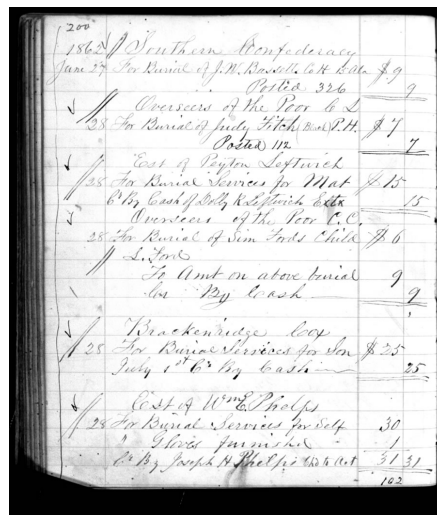 200
1862 // Southern Confederacy
June 27 For Burial of J. W. Bassell Co H 15 Ala $9
Posted 326 9
// Overseers of the Poor C L
28 For Burial of Judy Fitch P.H. $7
Posted 112 7
// Est of Peyton Leftwich
28 For Burial Services for Mat $15
Cr By Cash of Dolly R Leftwich Extx 15
Overseers of the Poor C. C.
28 For Burial of Sim Fords Child $6
// L. Ford
To Amt on above burial 9
By Cash 9
// Brackenridge Cox
28 For Burial Services for Son $25
July 1st Cr By Cash 25
// Est of Wm E Phelps
28 For Burial Services for Self 30
" Gloves furnished 1
Cr By Joseph H Phelps 31 31
102